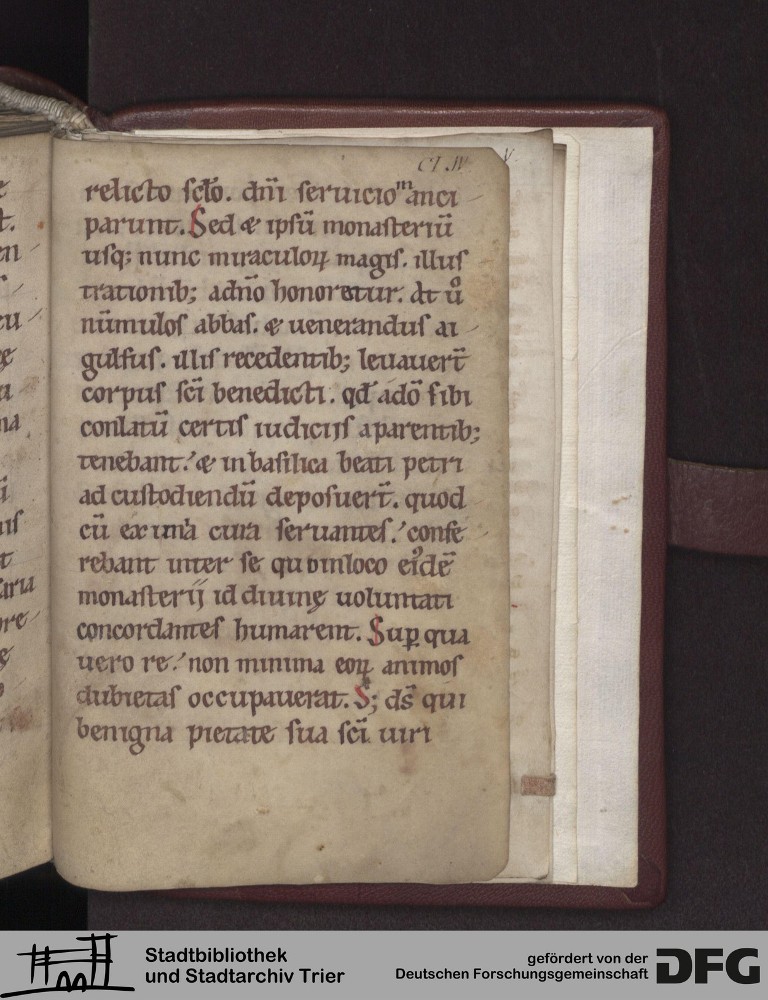 relicto sc̅lo. dn̅i seruicio manci
parunt. Sed & ipsu̅ monasteriu̅
usq; nunc miraculoꝝ magis. illus
trationib; adn̅o honoretur. At uͦ
nu̅mulos abbas. & uenerandus ai
gulfus. illis recedentib; leuauer̅t
corpus sc̅i benedicti. qd̅ ado̅ sibi
conlatu̅ certis iudiciis aparentib;
tenebant. & inbasilica beati petri
ad custodiendu̅ deposuer̅t. quod
cu̅ exima cura seruantes. confe
rebant inter se quoinloco eide̅
monasterij id diuinę uoluntati
concordantes humarent. Suꝑ qua
uero re. non minima eoꝝ animos
dubietas occupauerat. S; ds̅ qui
benigna pietate sua sc̅i uiri
Stadtbibliothek
und Stadtarchiv Trier
gefördert von der
Deutschen Forschungsgemeinschaft
DFG